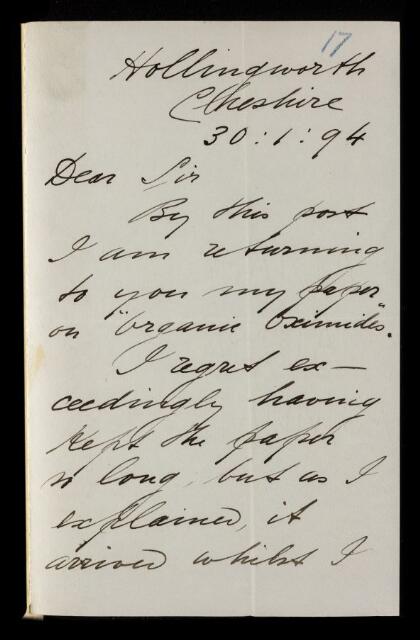 17
Hollingworth
Cheshire
30:1:94
Dear Sir
By this post
I am returning
to you my paper
on "Organic Oximides".
I regret ex—
ceedingly having
kept the paper
so long, but as I
explained, it
arrived whilst I